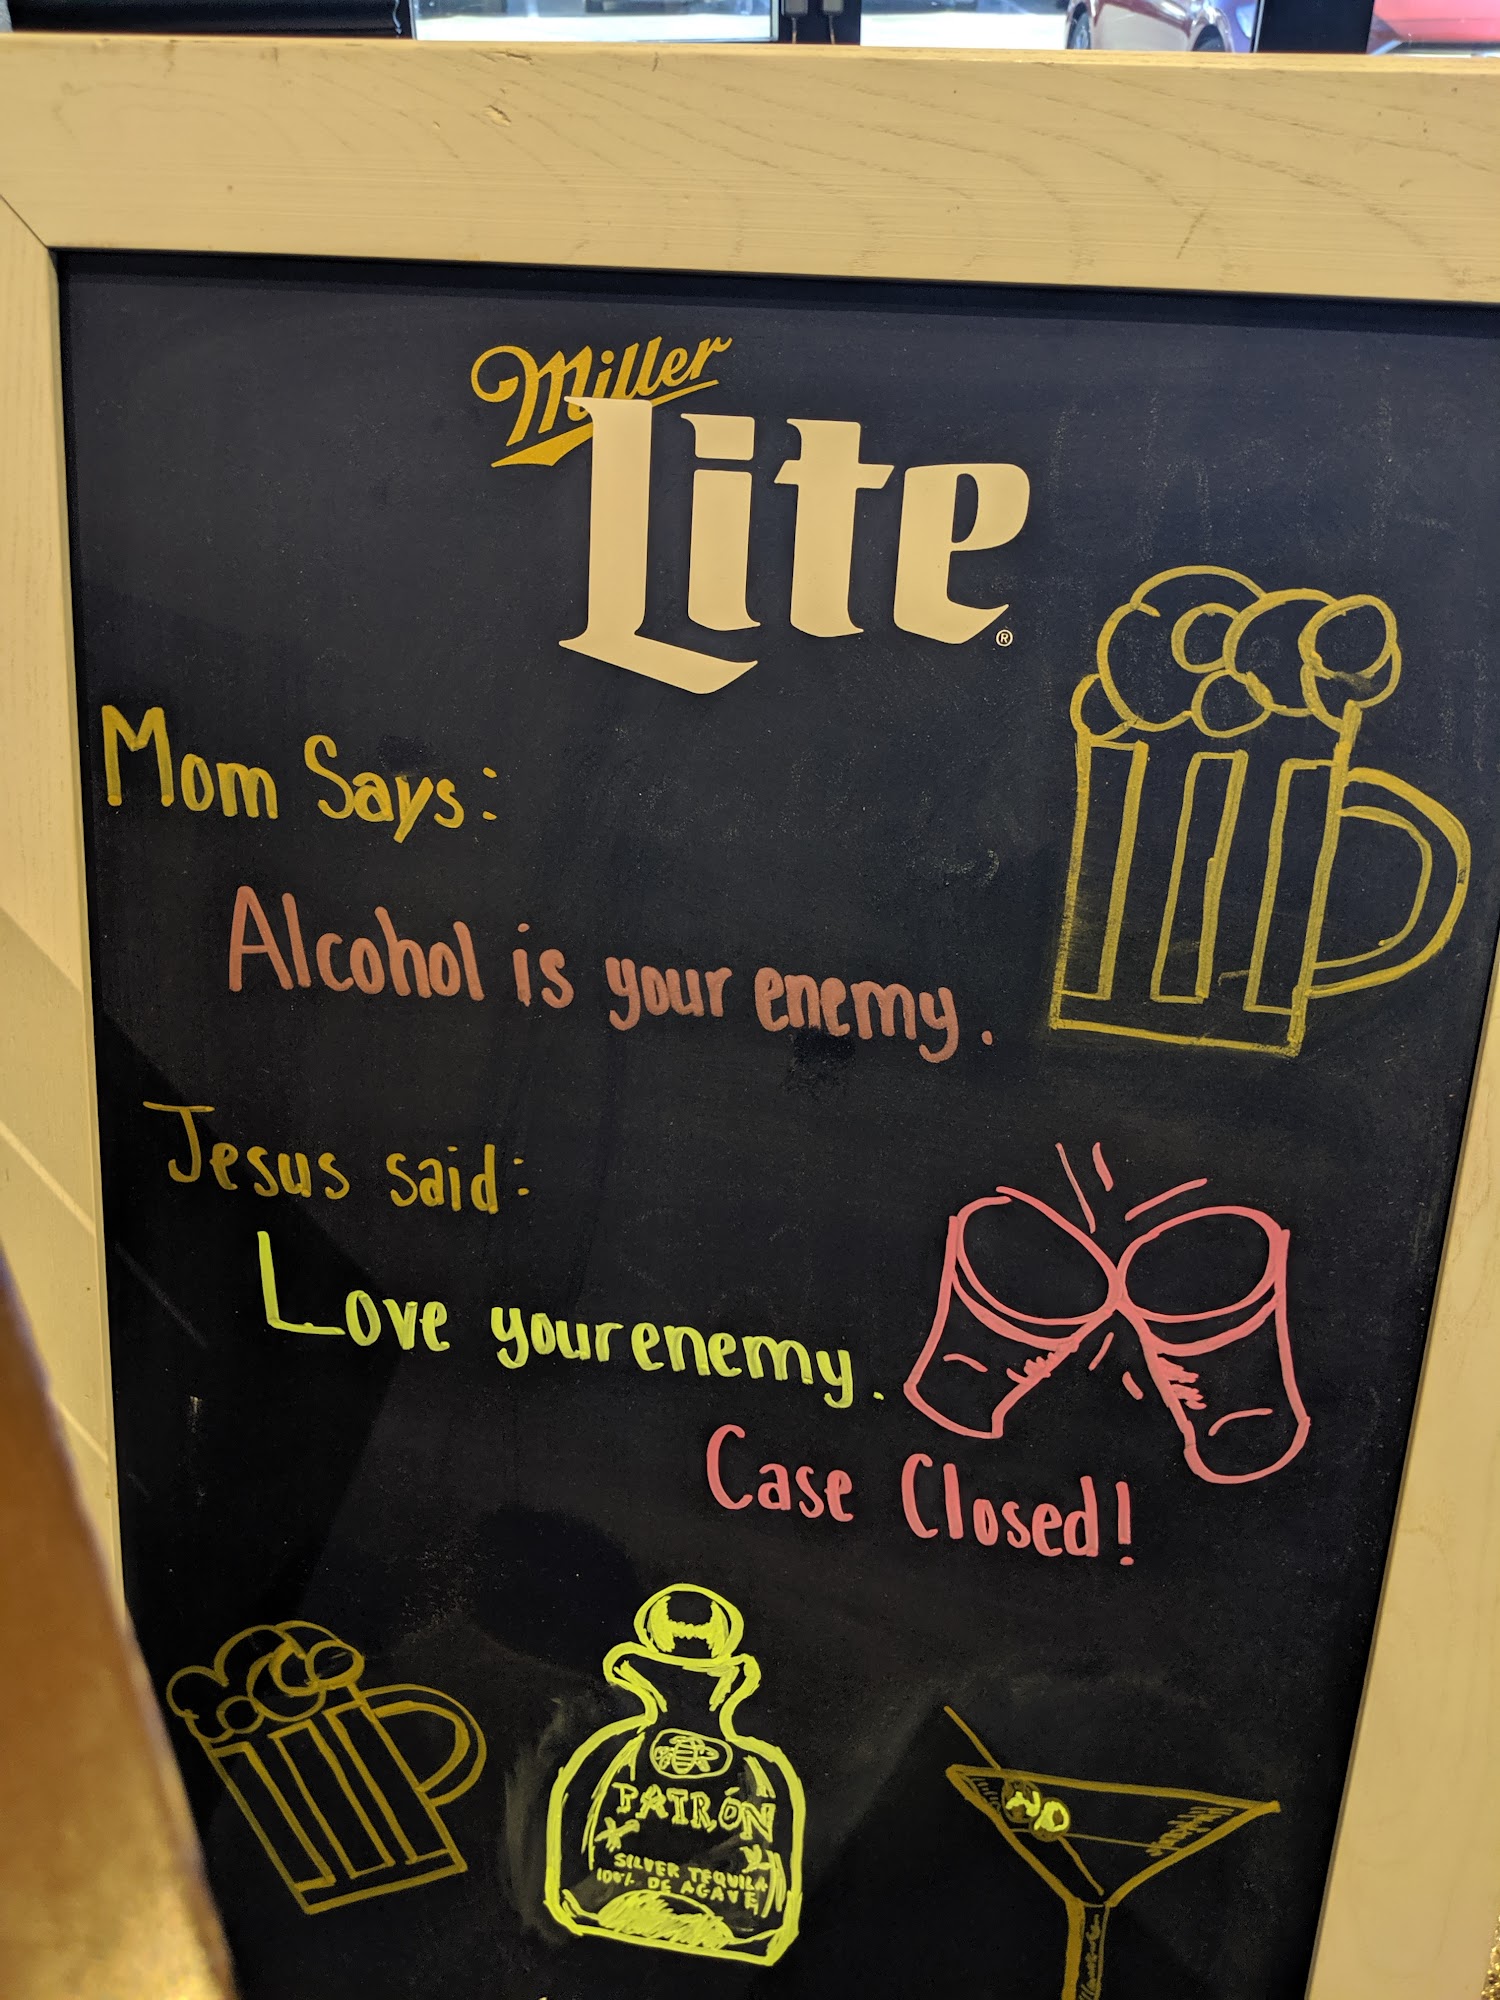 Miller
Lite®
Mom Says:
Alcohol is your enemy.
Jesus said:
Love your enemy.
Case Closed!
PATRÓN
SILVER TEQUILA
100% DE AGAVE